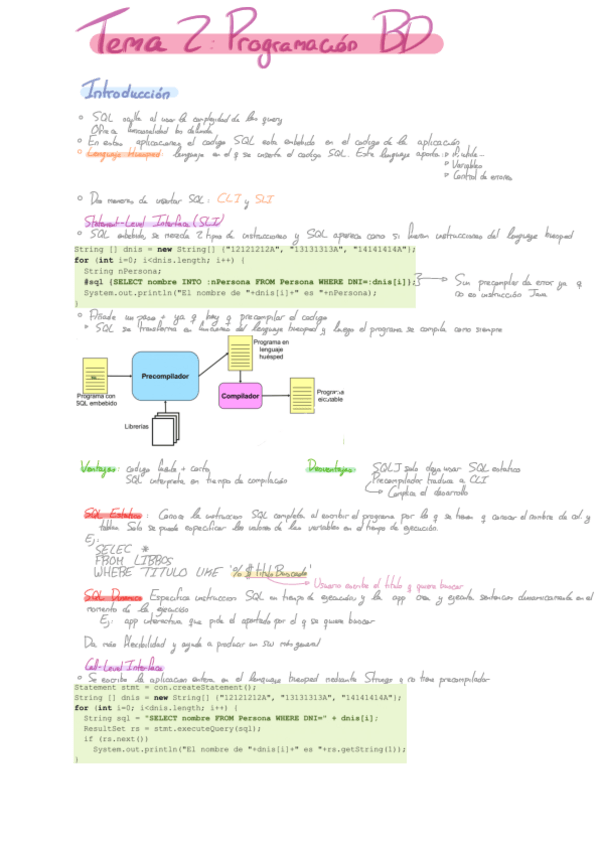 Tema 2: Programación BD
Introducción
SQL oculta al usar la complejidad de las query
Ofrece funcionalidad
En entas aplicaciones el codigo SQL esta embebido en el codigo de la aplicación
Lenguaje Huésped lenguaje en el q se inserta el codigo SQL. Este lenguaje aporta: if, while...
Variables
Control de errores
Dos maneras de insertar SQL: CLI y SLI
Statement-Level Interface (SLI)
SQL embebido, se mezcla 2 tipos de instrucciones y SQL aparece como si fueran instrucciones del lenguaje huesped
String [] dnis = new String[] {"12121212A", "13131313A", "14141414A"};
for (int i=0; i<dnis.length; i++) {
String nPersona;
#sql {SELECT nombre INTO :nPersona FROM Persona WHERE DNI=:dnis[i]};
System.out.println("El nombre de "+dnis[i]+" es "+nPersona);
}
Sin precompilar da error ya q
no es instrucción Java
Añade un paso + ya q hay q precompilar el codigo
SQL se transforma en funciones del lenguaje huesped y luego el programa se compila como siempre
Programa con
SQL embebido
Precompilador
Librerías
Programa en
lenguaje
huésped
Compilador
Programa
Ventajas: codigo + corto
SQL interpreta en tiempo de compilación
Desventajas SQLJ solo deja usar SQL estatico
Precompilador traduce a CLI
Complica el desarrollo
SQL Estatico: Conoce la instruccion SQL completa al escribir el programa por lo q se tienen q conocer el nombre de col y
tablas. Solo se puede especificar los valores de las variables en el tiempo de ejecución.
Ej:
SELEC *
FROM LIBROS
WHERE TITULO LIKE '%$tituloBuscado'
Usuario escribe el titulo q quiera buscar
SQL Dinamico Especifica instruccion SQL en tiempo de ejecución y la app crea y ejecuta sentencias dinamicamente en el
momento de la ejecución
Ej: app interactiva que pida el apartado por el q se quiere buscar
Da más flexibilidad y ayuda a producir un SW más general
Call-Level Interface
Se escribe la aplicacion entera en el lenguaje huesped mediante Strings y no tiene precompilador
Statement stmt = con.createStatement();
String [] dnis = new String[] {"12121212A", "13131313A", "14141414A"};
for (int i=0; i<dnis.length; i++) {
String sql = "SELECT nombre FROM Persona WHERE DNI=" + dnis[i];
ResultSet rs = stmt.executeQuery(sql);
if (rs.next())
System.out.println("El nombre de "+dnis[i]+" es "+rs.getString(1));
}